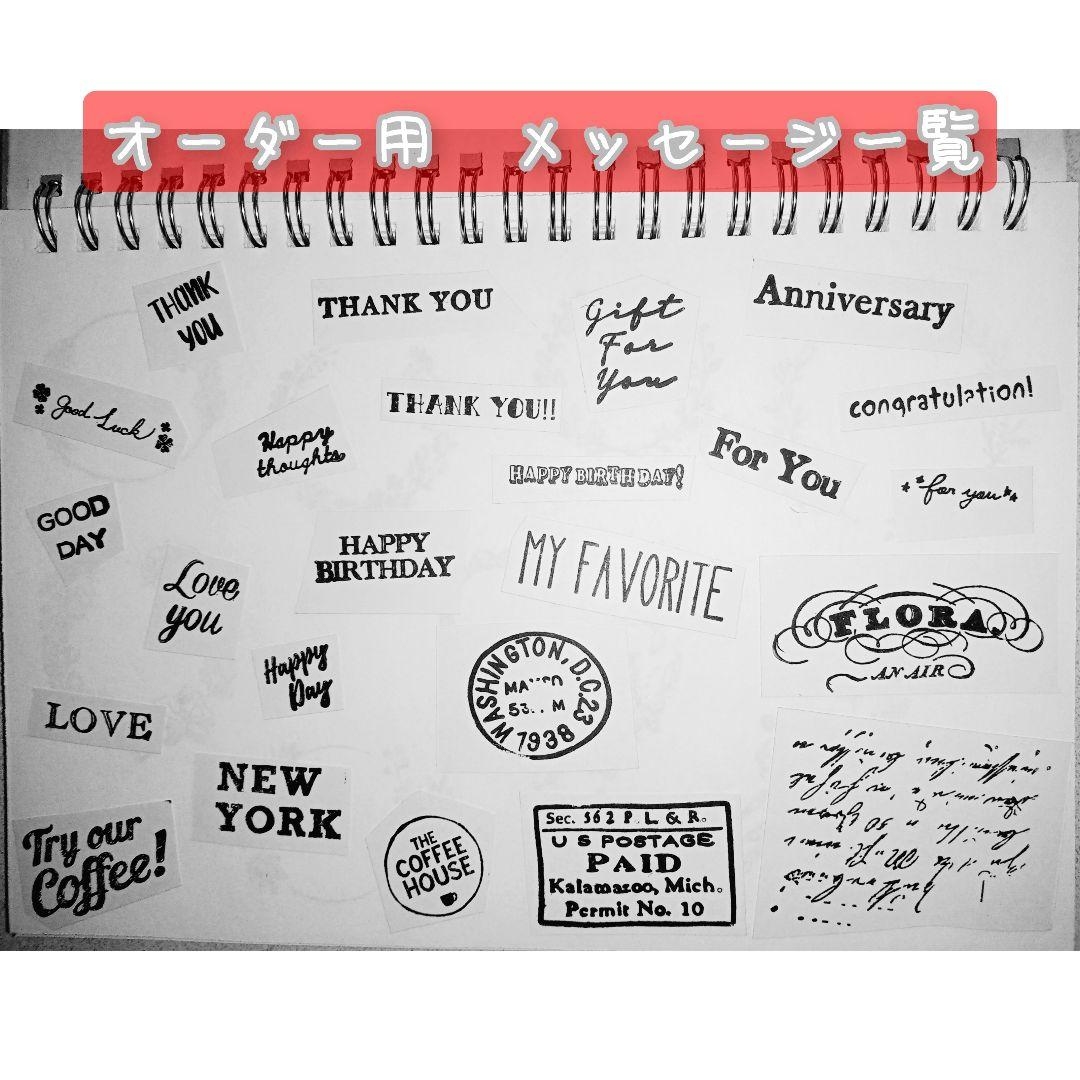 オーダー用 メッセージ一覧
THANK
YOU
THANK YOU
Gift
For
You
Anniversary
Good Luck
THANK YOU!!
congratulation!
Happy
thoughts
HAPPY BIRTHDAY!
For You
for you
GOOD
DAY
HAPPY
BIRTHDAY
MY FAVORITE
Love
you
FLORA,
AN AIR
Happy
Day
WASHINGTON, D.C. 23
1938
LOVE
NEW
YORK
Try our
Coffee!
THE
COFFEE
HOUSE
Sec. 562 P. L. & R.
U S POSTAGE
PAID
Kalamazoo, Mich.
Permit No. 10